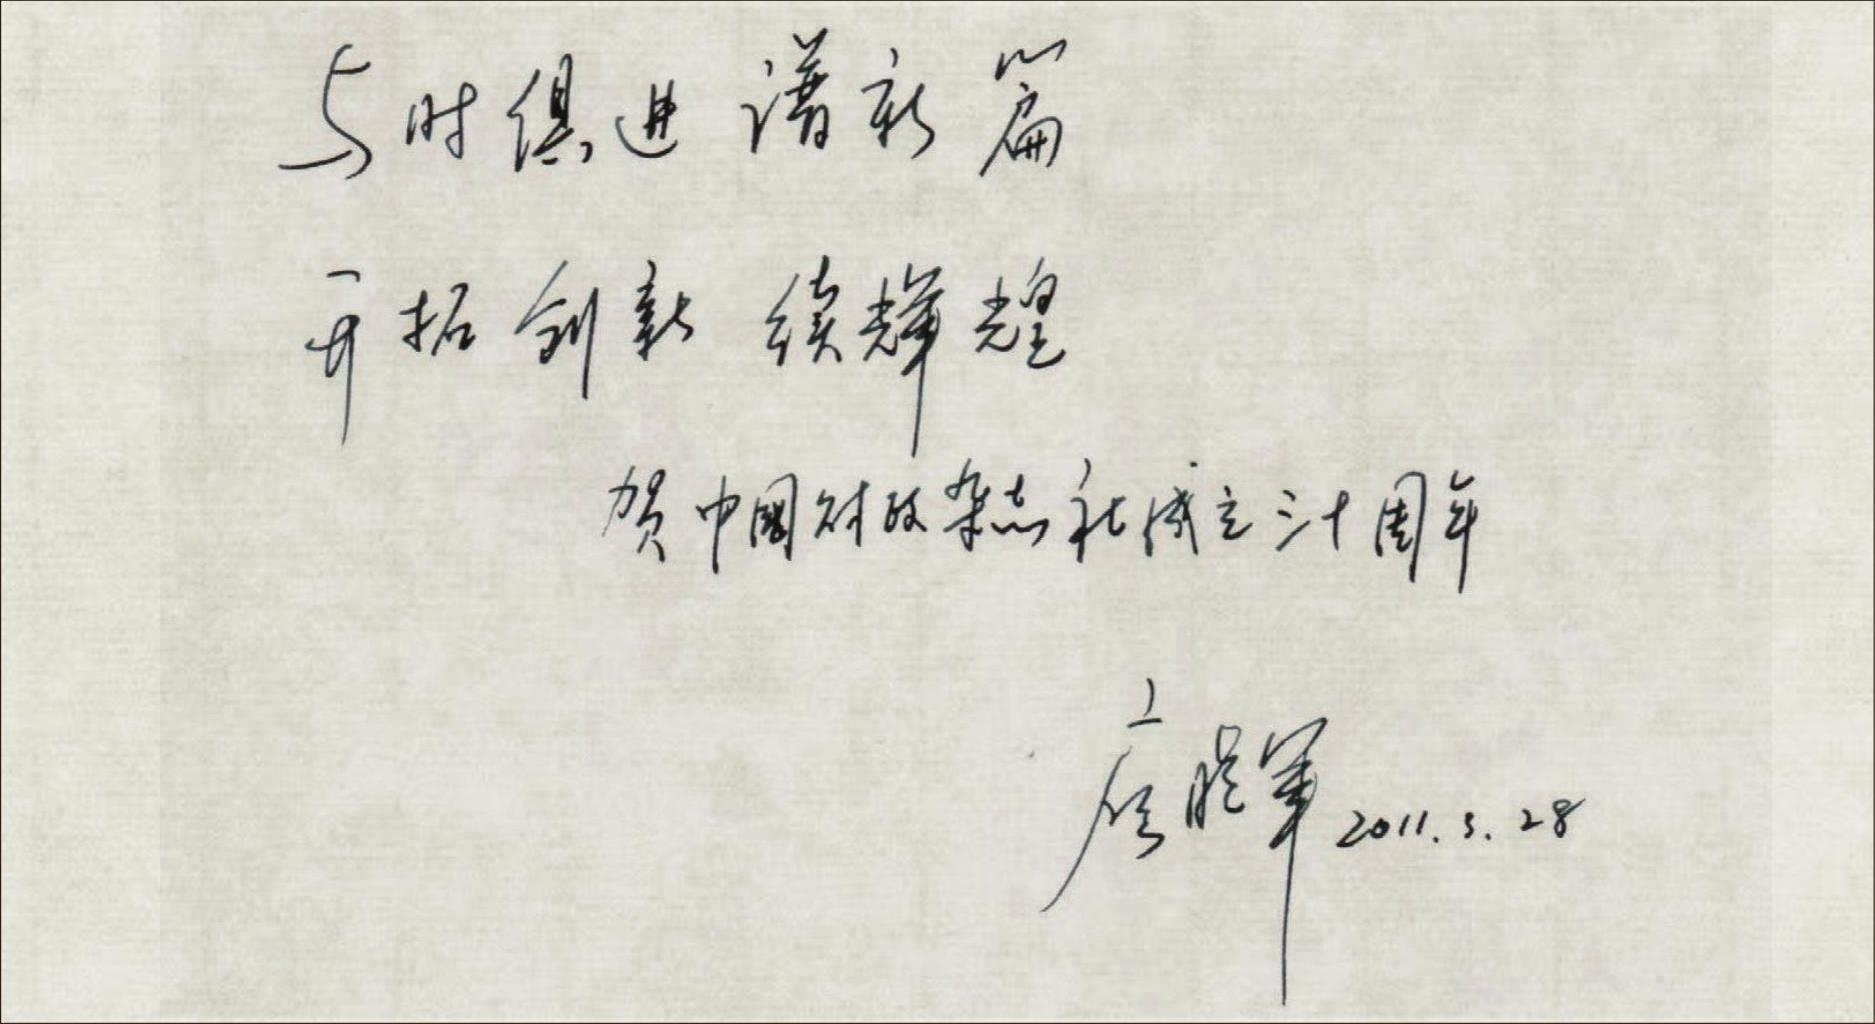 与时俱进 谱新篇
开拓创新 续辉煌
贺中国财政杂志社成立三十周年
廖晓军 2011.3.28